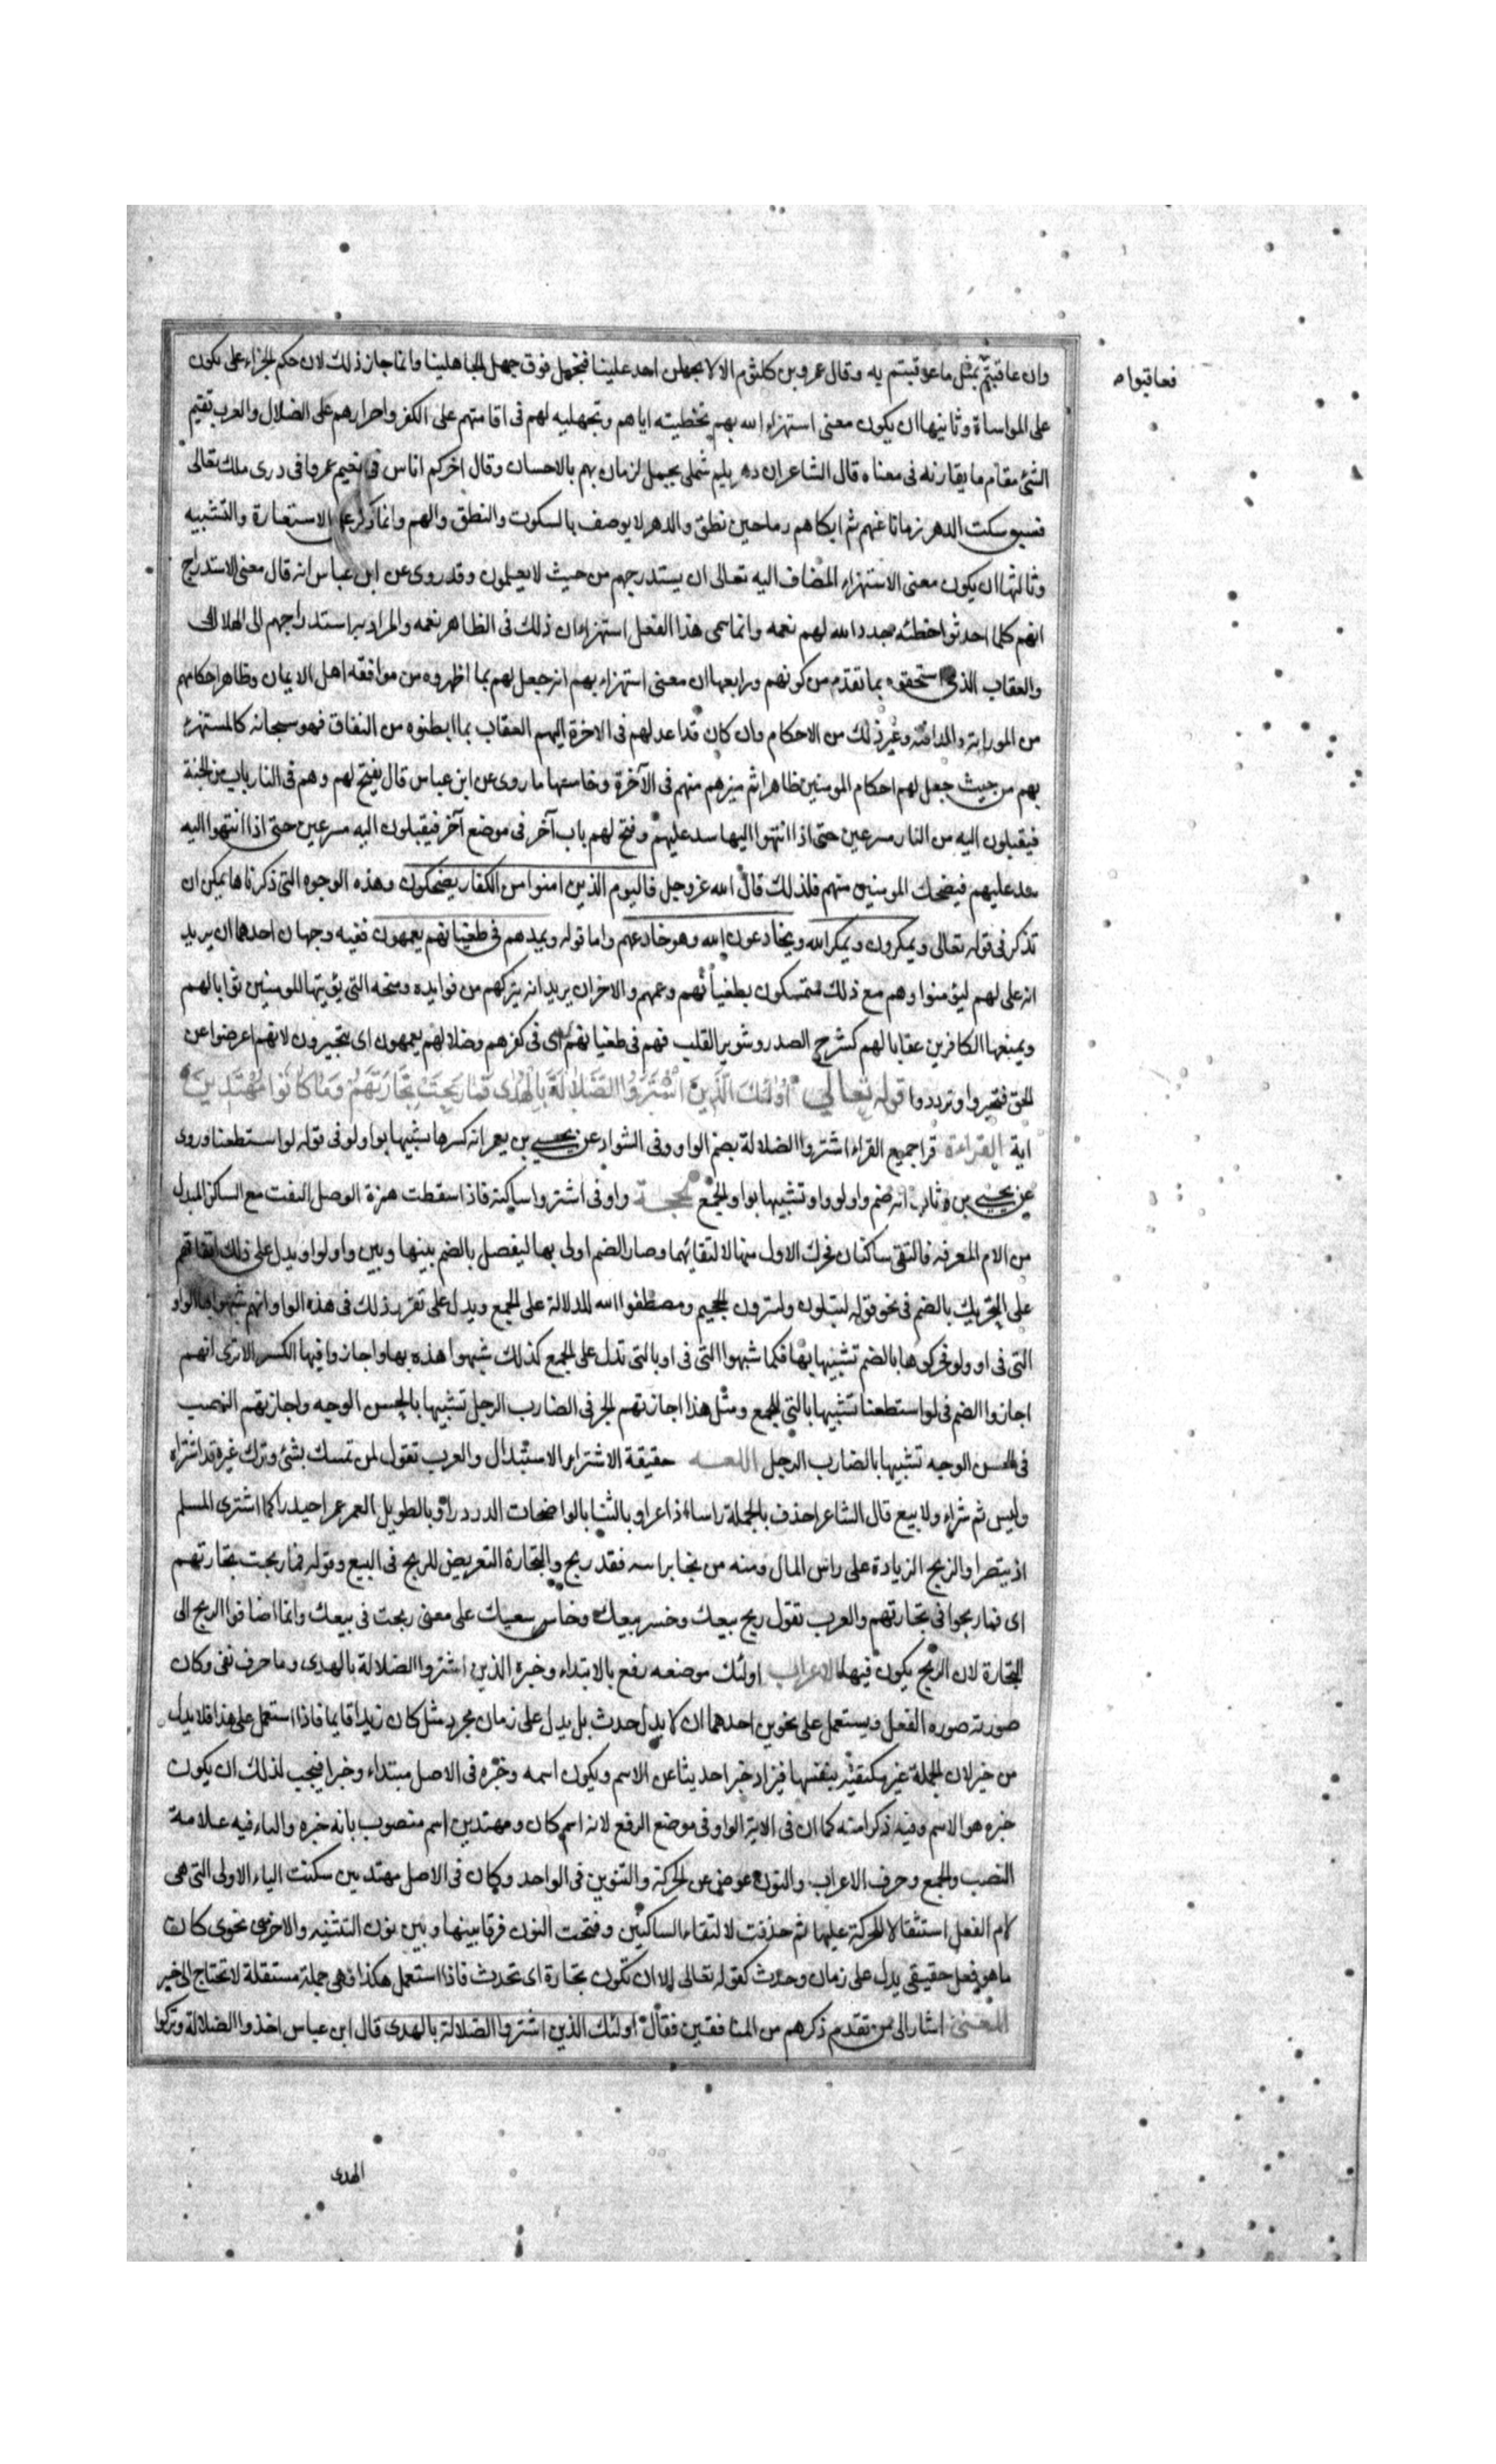 وان عاقبتم بمثل ما عوقبتم به وقال عمرو بن كلثوم الا لا يجهلن احد علينا فنجهل فوق جهل الجاهلينا وانما جاز ذلك لان حكم الجزاء على يكون
فعاقبوا م
على المواساة وثانيها ان يكون معنى استهزاء الله بهم تخطيته اياهم وتجهيليه لهم فى اقامتهم على الكفر واحرارهم على الضلال والعرب تقيم
الشئ مقام ما يقارنه فى معناه قال الشاعر ان دهر يلم شملى بجمل لزمان بهم بالاحسان وقال اخركم اناس فى نعيم عمروا فى درى ملك تعالى
فسبق سكت الدهر زمانا عنهم ثم ابكاهم دما حين نطق والدهر لا يوصف بالسكوت والنطق والهم وانما ذكر على الاستعارة والتشبيه
وثالثها ان يكون معنى الاستهزاء المضاف اليه تعالى ان يستدرجهم من حيث لا يعلمون وقد روى عن ابن عباس انه قال معنى الاستدراج
انهم كلما احدثوا خطئه جدد الله لهم نعمه وانما سمى هذا الفعل استهزاء ان ذلك فى الظاهر نعمه والمراد به استدراجهم الى الهلاك
والعقاب الذى استحقوه بما تقدم من كونهم ورابعها ان معنى استهزاء بهم انه جعل لهم بما اظهروه من موافقه اهل الايمان وظاهر احكامهم
من الموراثة والمدافنه وغير ذلك من الاحكام وان كان قد اعد لهم فى الاخرة اليهم العقاب بما ابطنوه من النفاق فهو سبحانه كالمستهزئ
بهم من حيث جعل لهم احكام المومنين ظاهرا ثم ميزهم منهم فى الآخرة وخامسها ما روى عن ابن عباس قال يفتح لهم وهم فى النار باب من الجنة
فيقبلون اليه من النار مسرعين حتى اذا انتهوا اليها سد عليهم وفتح لهم باب آخر فى موضع آخر فيقبلون اليه مسرعين حتى اذا انتهوا اليه
سد عليهم فيضحك المومنين منهم فلذلك قال الله عز وجل فاليوم الذين امنوا من الكفار يضحكون وهذه الوجوه التى ذكرناها يمكن ان
تذكر فى قوله تعالى ويمكرون ويمكر الله ويخادعون الله وهو خادعهم واما قوله ويمدهم فى طغيانهم يعمهون ففيه وجهان احدهما ان يريد
انه على لهم ليؤمنوا وهم مع ذلك متمسكون بطغيانهم وعمهم والاخر ان يريد انه يتركهم من فوايده ومنحه التى يؤيتها للمومنين ثوابا لهم
ويمنعها الكافرين عقابا لهم كشرح الصدر وتنوير القلب فهم فى طغيانهم اى فى كفرهم وضلالهم يعمهون اى يتحيرون لانهم اعرضوا عن
الحق فتحيروا وترددوا قوله تعالى اُولئِكَ الَّذينَ اشْتَرَوُا الضَّلالَةَ بِالْهُدى فَمَا رَبِحَتْ تِجَارَتُهُمْ وَمَا كَانُوا مُهْتَدِينَ
اية القراءة قرا جميع القراء اشتروا الضلالة بضم الواو وفى الشواد عن يحيى بن يعمر انه كسرها شبيها بواو لو فى قوله لو استطعنا وروى
عن يحيى بن وثاب انه ضم واو لو واو تشبيها بواو الجمع الحجة واو فى اشتروا ساكنة فاذا اسقطت همزة الوصل التفت مع الساكن المبدل
من الام المعرفه فالتقى ساكنان فحرك الاول منها لالتقائهما وصار الضم اولى بها ليفصل بالضم بينها وبين واو لو او ويدل على ذلك اتفاقهم
على التحريك بالضم فى نحو قوله لتبلون ولترون الجحيم ومصطفوا الله للدلالة على الجمع ويدل على تقرر ذلك فى هذه الواو انهم شبهوا بها الواو
التى فى او ولو فحركوها بالضم تشبيها بها فكما شبهوا التى فى او بالتى تدل على الجمع كذلك شبهوا هذه بها واجازوا فيها الكسر الا ترى انهم
اجازوا الضم فى لو استطعنا تشبيها بالتى للجمع ومثل هذا اجازتهم الجر فى الضارب الرجل تشبيها بالحسن الوجه واجازتهم النصب
فى الحسن الوجه تشبيها بالضارب الرجل اللغه حقيقة الاشتراء الاستبدال والعرب تقول لمن تمسك بشئ وترك غيره قد اشتراه
وليس ثم شراء ولا بيع قال الشاعر اخذت بالجملة راسا اذا عرا وبالثنايا الواضحات الدردرا وبالطويل العمر عمرا حيدرا كما اشترى المسلم
اذ تنصرا والربح الزيادة على راس المال ومنه من نجا براسه فقد ربح والتجارة التعريض للربح فى البيع وقوله فما ربحت تجارتهم
اى فما ربحوا فى تجارتهم والعرب تقول ربح بيعك وخسر بيعك وخاب سعيك على معنى ربحت فى بيعك وانما اضافوا الربح الى
التجارة لان الربح يكون فيها الاعراب اولئك موضعه رفع بالابتداء وخبره الذين اشتروا الضلالة بالهدى وما حرف نفى وكان
صورته صوره الفعل ويستعمل على نحوين احدهما ان لا يدل حدث بل يدل على زمان مجرد مثل كان زيد قايما فاذا استعمل على هذا فلا بد له
من خبر لان الجملة غير مكتفية بنفسها فيزاد خبرا حديثا عن الاسم ويكون اسمه وخبره فى الاصل مبتداء وخبرا فيجب لذلك ان يكون
خبره هو الاسم وفيه ذكر امنه كما ان فى الاية الواو فى موضع الرفع لانه اسم كان ومهتدين اسم منصوب بانه خبره والياء فيه علامة
النصب والجمع وحرف الاعراب والنون عوض عن الحركة والتنوين فى الواحد وكان فى الاصل مهتديين سكنت الياء الاولى التى هى
لام الفعل استثقالا للحركة عليها ثم حذفت لالتقاء الساكنين وفتحت النون فرقا بينها وبين نون التثنيه والاخرى نحوى كان
ما هو فعل حقيقى يدل على زمان وحدث كقوله تعالى الا ان تكون تجارة اى تحدث فاذا استعمل هكذا فهى جملة مستقلة لا تحتاج الى خبر
المعنى اشار الى من تقدم ذكرهم من المنافقين فقال اولئك الذين اشتروا الضلالة بالهدى قال ابن عباس اخذوا الضلالة وتركوا
الهدى